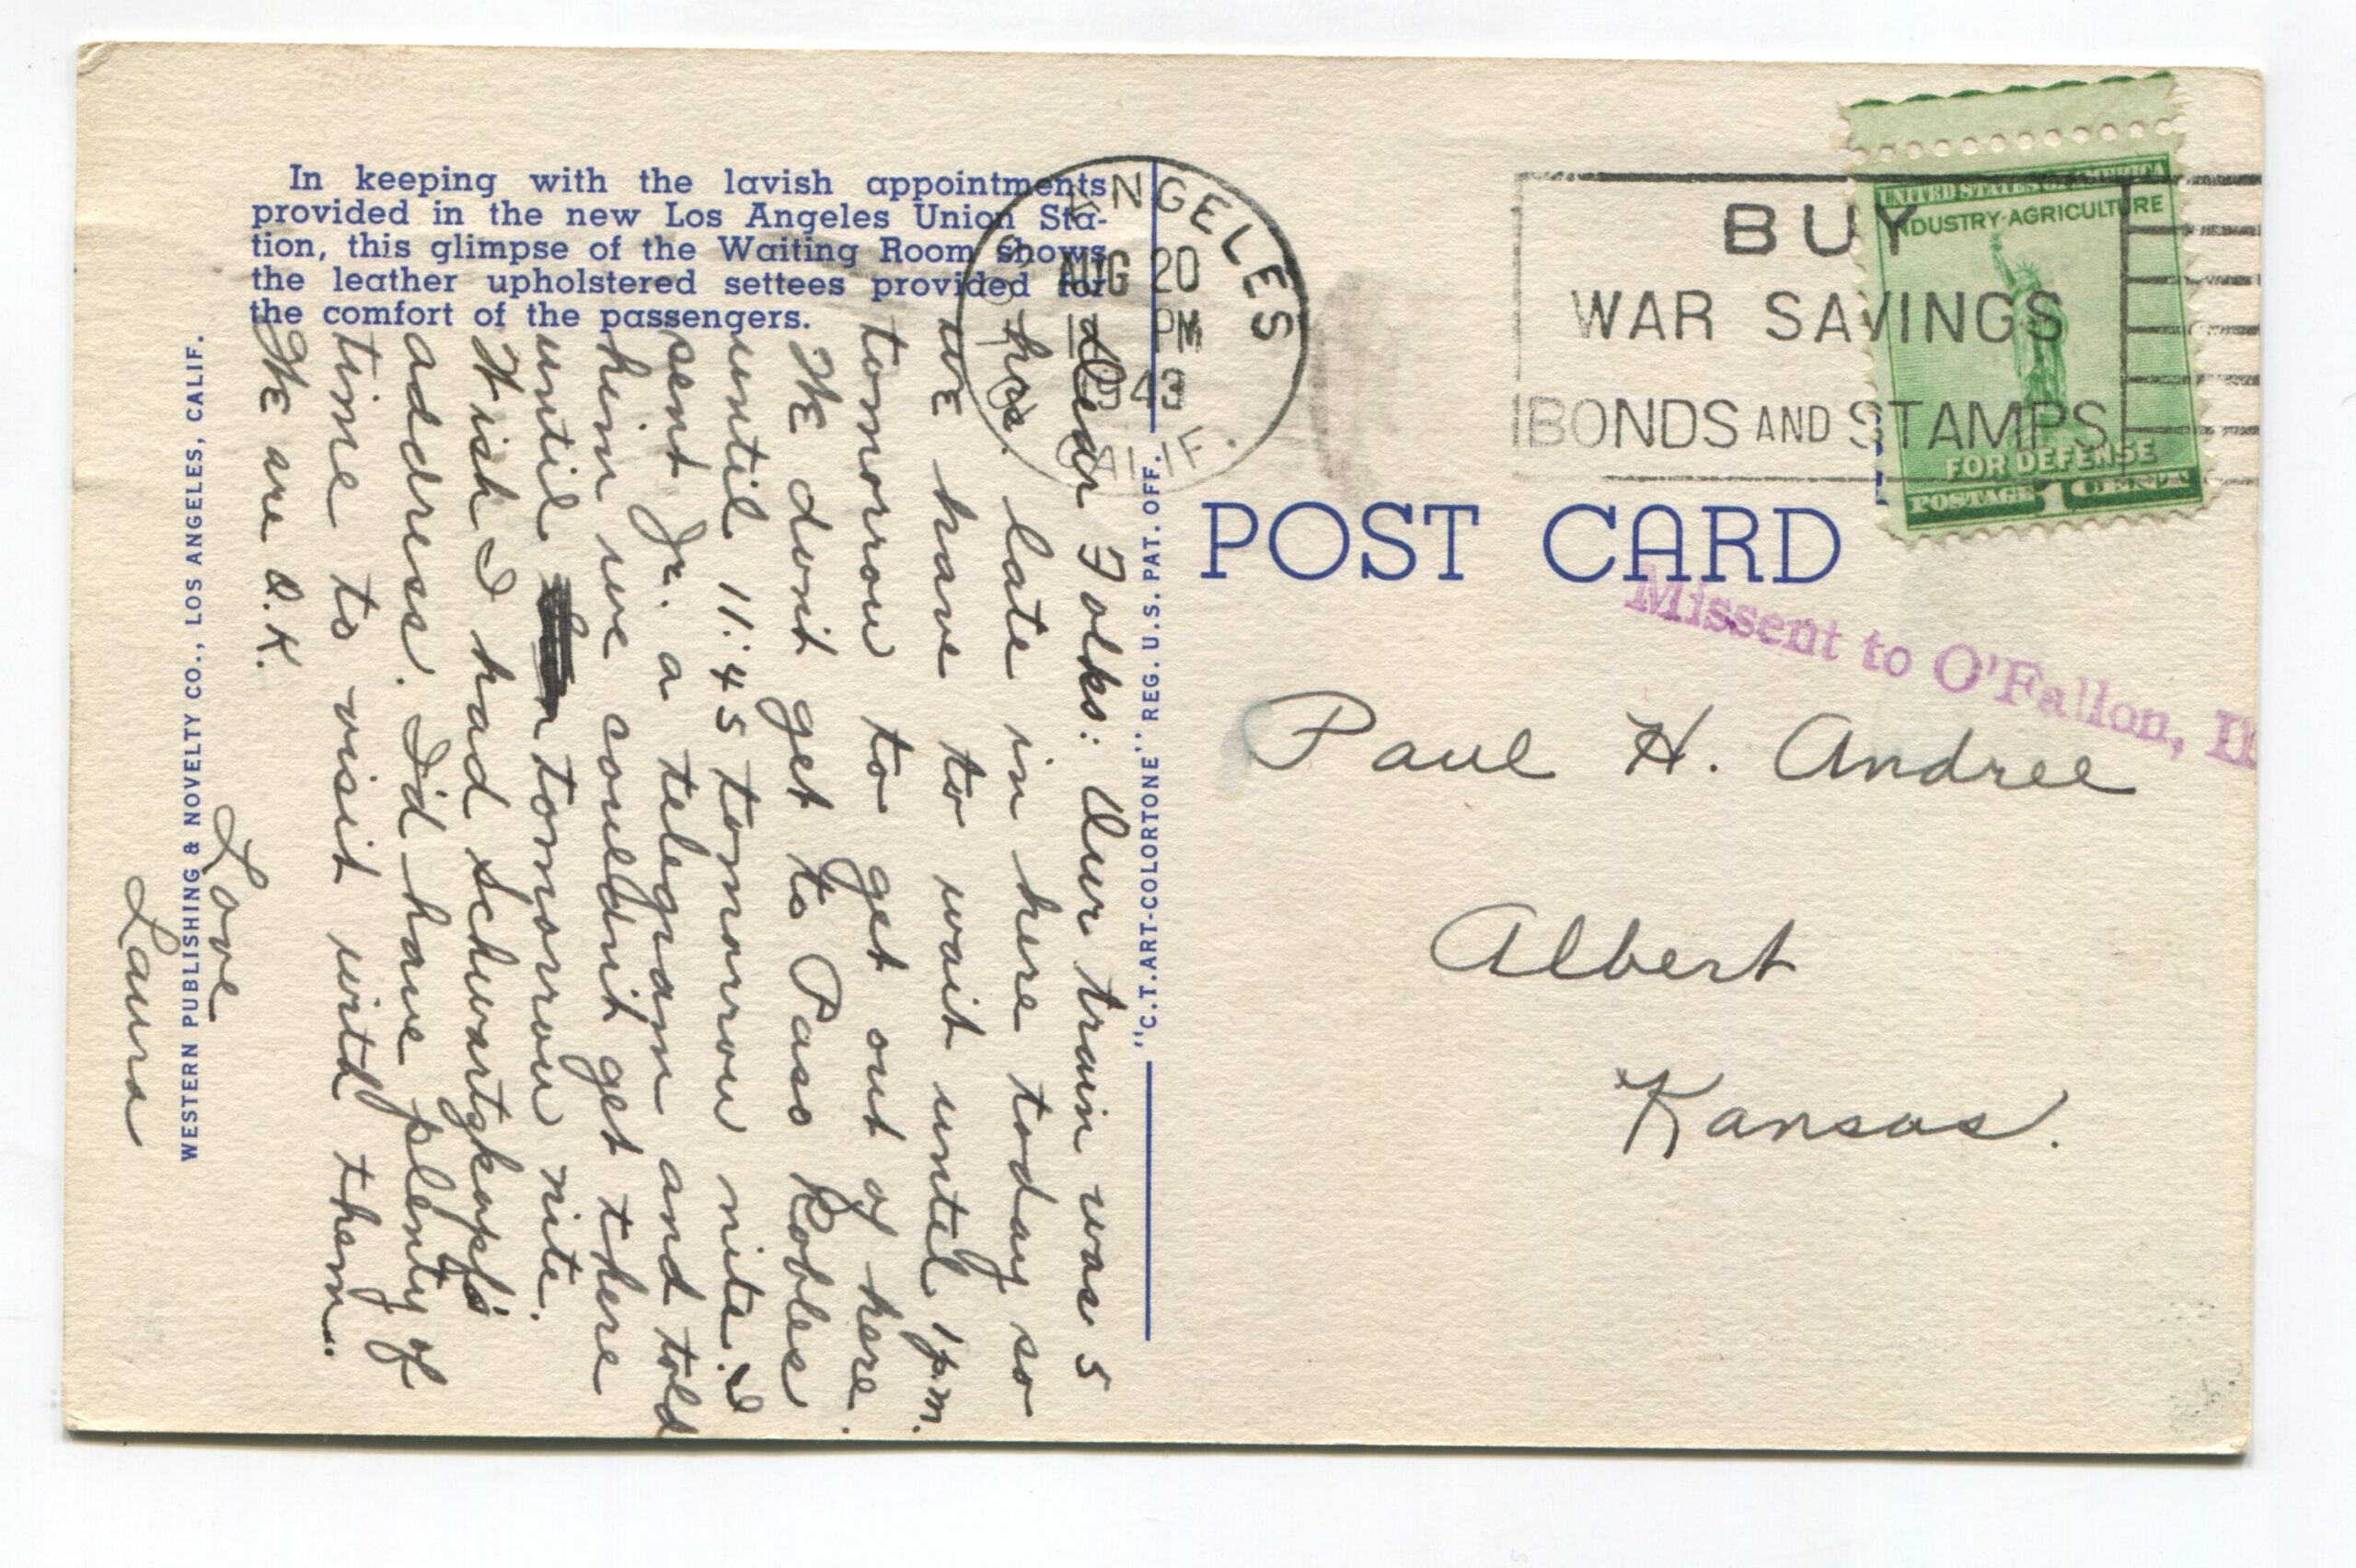 In keeping with the lavish appointments
provided in the new Los Angeles Union Sta-
tion, this glimpse of the Waiting Room shows
the leather upholstered settees provided for
the comfort of the passengers.
Dear Folks: Our train was 5
hrs. late in here today so
we have to wait until 1 p.m.
tomorrow to get out of here.
We don't get to Paso Robles
until 11:45 tomorrow nite. I
sent Jr. a telegram and told
him we couldn't get there
until tomorrow nite.
Wish I had Schwartzkopf's
address. I'd have plenty of
time to visit with them.
We are O.K.
Love
Laura
WESTERN PUBLISHING & NOVELTY CO., LOS ANGELES, CALIF.
"C.T. ART-COLORTONE" REG. U.S. PAT. OFF.
LOS ANGELES
AUG 20
PM
1943
CALIF.
BUY
WAR SAVINGS
BONDS AND STAMPS
UNITED STATES OF AMERICA
INDUSTRY·AGRICULTURE
FOR DEFENSE
POSTAGE 1 CENT
POST CARD
Missent to O'Fallon, Ill
Paul H. Andree
Albert
Kansas.